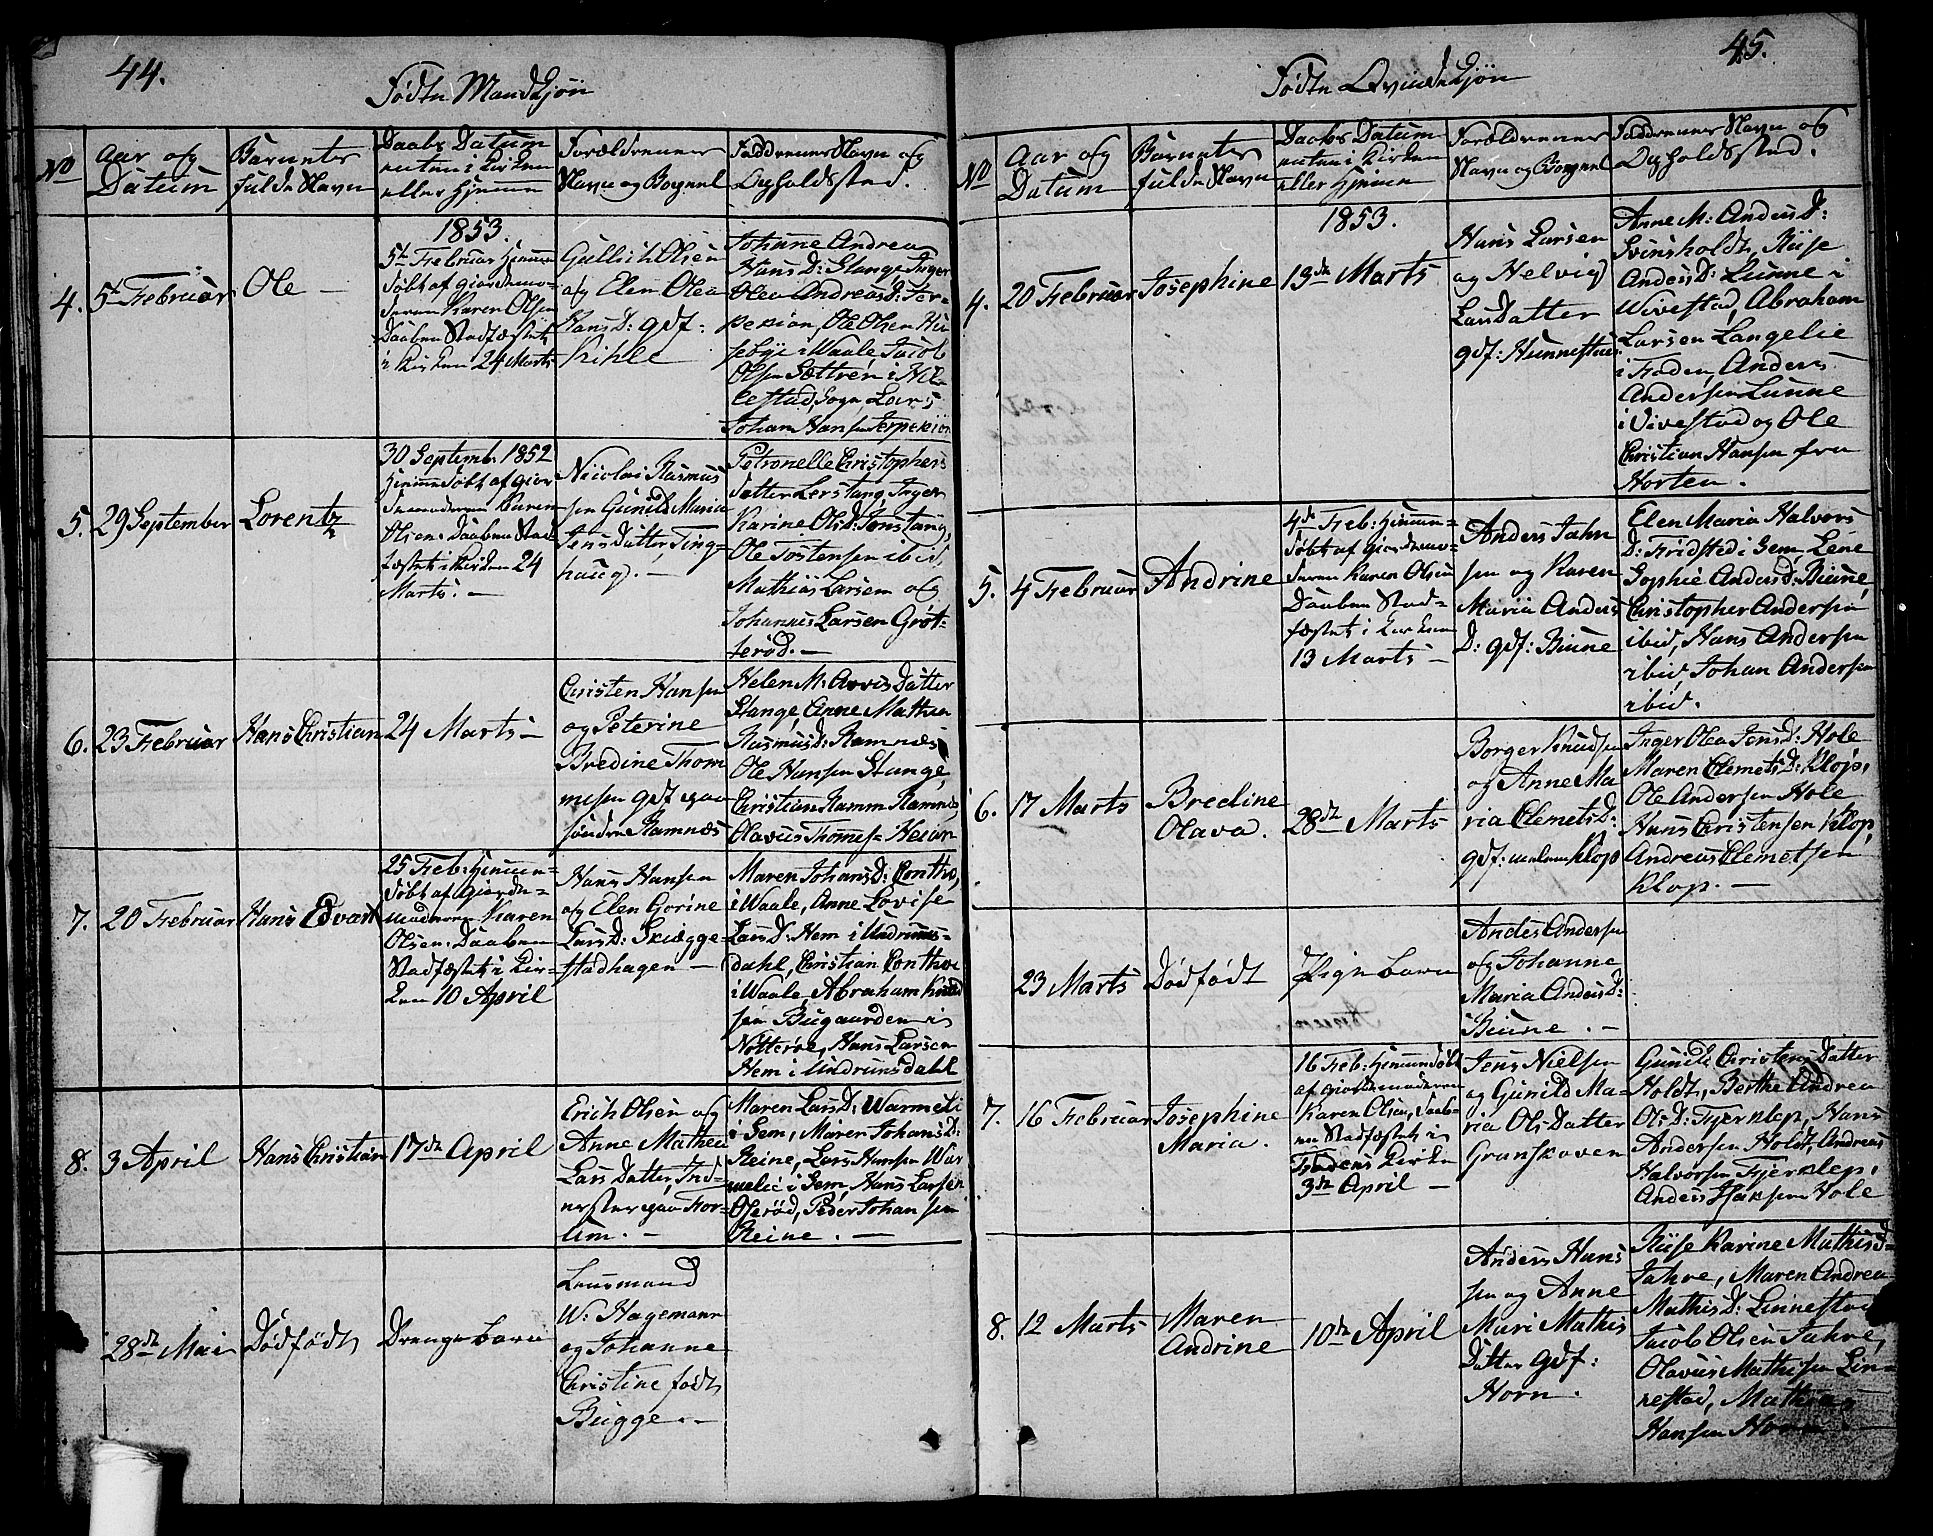 44.
Fødte Mandkjøn
No
Aar og
Datum
Barnets
fulde Navn
Daabs Datum
enten i Kirken
eller Hjemme
Forældrenes
Navn og Bopæl
Faddrenes Navn og
Opholdssted.
4.
5te Februar
Ole
1853.
5te Februar Hjemme
døbt af Giordemo-
deren Karen Olsen
Daaben Stadfæstet
i Kirken 24 Marts
Gullich Olsen
og Elen Olea
HansD: gdf:
Kihle
Johanne Andrea
HansD: Stange, Inger
Olea AndreasD: Jer-
pekiøn, Ole Olsen Hu-
sebye i Waale, Jacob
Olsen Sættren i Hil-
lestad Sogn, Lars
Johan Hansen Jerpekiøn
5.
29 September
Lorentz
30 Septemb. 1852
Hjemmedøbt af Gior
demoderen Karen
Olsen. Daaben Stad
fæstet i Kirken 24
Marts. -
Nicolai Rasmus
sen Gunild Maria
JensDatter, Ting-
haug. -
Petronelle Christophers
datter Lerstang, Inger
Karine OlsD: Jonstang,
Ole Tostensen ibid,
Mathias Larsen og
Johannes Larsen Grøt-
terød. -
6.
23 Februar
Hans Christian
24 Marts -
Christen Hansen
og Peterine
Bredine Thom
mesen gdf paa
søndre Ramnæs
Helen M: ArvisDatter
Stange, Anne Mathea
RasmusD: Ramnæs
Ole Hansen Stange,
Christian Ramm Ramnæs,
Olavus Thomes: Heian
7.
20 Februar
Hans Edvart
25 Feb: Hjemme-
døbt af Giorde-
moderen Karen
Olsen. Daaben
Stadfæstet i Kir-
ken 10 April
Hans Hansen
og Elen Gorine
LarsD: Skiegge-
stadhagen -
Maren JohansD: Conthoe,
i Waale, Anne Lovise
LarsD: Hem i Undrums-
dahl, Christian Conthoe
i Waale, Abraham Knud
sen Bugaarden i
Nøtterøe, Hans Larsen
Hem i Undrumsdahl
8.
3 April
Hans Christian
17de April
Erich Olsen og
Anne Mathea
LarsDatter, Ind-
erster paa For-
um. -
Maren LarsD: Warmeli
i Sem, Maren JohansD:
Reine, Lars Hansen War
melie i Sem, Hans Larsen
Olerød, Peder Johansen
Reine. -
28de Mai
Dødfødt
Drengebarn
Lensmand
W: Hagemann
og Johanne
Christine født
Bugge. -
45.
Fødte Qvindekjøn
No
Aar og
Datum
Barnets
fulde Navn
Daabs Datum
enten i Kirken
eller Hjemme
Forældrenes
Navn og Bopæl
Faddrenes Navn og
Opholdssted.
4.
20 Februar
Josephine
1853.
13de Marts
Hans Larsen
og Helvig
LarsDatter
gdf: Hunnestad
Anne M: AndersD:
Svinsholdt, Riise
AndersD: Lunne i
Wivestad, Abraham
Larsen Langelie
i Foden, Anders
Andersen Lunne
i Vivestad og Ole
Christian Hansen fra
Horten.
5.
4 Februar
Andrine
4de Feb: Hjemme-
døbt af Giordemo-
deren Karen Olsen
Daaben Stad-
fæstet i Kirken
13 Marts -
Anders Jahn
sen og Karen
Maria Anders
D: gdf: Biune
Elen Maria Halvors
D: Fridsted i Sem, Lene
Sophie AndersD: Biune,
Christopher Andersen
ibid, Hans Andersen
ibid, Johan Andersen
ibid.
6.
17 Marts
Bredine
Olava.
28de Marts
Borger Knudsen
og Anne Ma
ria ClemetsD:
gdf: Klop
Inger Olea JensD: Hole
Maren ClemetsD: Klop,
Ole Andersen Hole
Hans Christensen Klop,
Andreas Clemetsen
Klop. -
23 Marts
Dødfødt
Pigebarn
Anders Andersen
og Johanne
Maria AndersD:
Biune. -
7.
16 Februar
Josephine
Maria.
16 Feb: Hjemmedøbt
af Giordemoderen
Karen Olsen, Daab-
en Stadfæstet i
Fodens Kirke
3de April -
Jens Nielsen
og Gunild Ma-
ria OlsDatter
Granskoven
Gunild ChristensDatter
Holdt, Berthe Andrea
OlsD: Fjerklep, Hans
Andersen Holdt, Andreas
Halvorsen Fjerklep,
Anders Isaksen Hole
8.
12 Marts
Maren
Andrine
10de April
Anders Hans
sen og Anne
Mari Mathis
Datter gdf:
Horn.
Riise Karine MathisD-
Jahre, Maren Andrea
MathisD: Linnestad
Jacob Olsen Jahre,
Olavus Mathisen Lin-
nestad, Mathias
Hansen Horn.